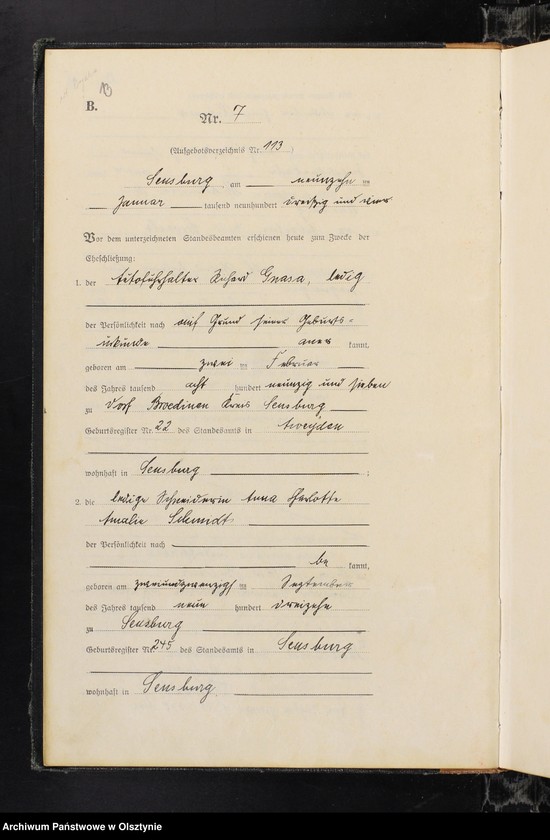 B.
Nr. 7
(Aufgebotsverzeichnis Nr. 113)
Sensburg, am neunzehn ten
Januar tausend neunhundert dreißig und vier
Vor dem unterzeichneten Standesbeamten erschienen heute zum Zwecke der
Eheschließung:
1. der Autofuhrhalter Richard Gnasa, ledig
der Persönlichkeit nach auf Grund seiner Geburts-
urkunde aner kannt,
geboren am zwei ten Februar
des Jahres tausend acht hundert neunzig und sieben
zu Dorf Broedinen Kreis Sensburg
Geburtsregister Nr. 22 des Standesamts in Aweyden
wohnhaft in Sensburg ;
2. die ledige Schneiderin Anna Charlotte
Amalie Schmidt
der Persönlichkeit nach
be kannt,
geboren am zweiundzwanzigsten September
des Jahres tausend neun hundert dreizehn
zu Sensburg
Geburtsregister Nr. 245 des Standesamts in Sensburg
wohnhaft in Sensburg
Archiwum Państwowe w Olsztynie